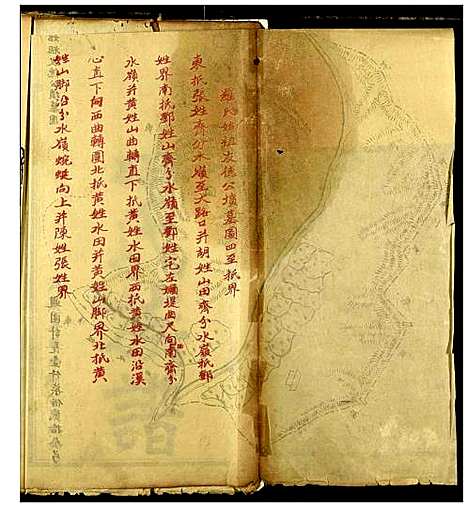 羅氏始祖友德公墳墓圖四至抵界
東抵張姓齊分水嶺至大路口并胡姓山田齊分水嶺抵鄧
姓界南抵鄧姓山齊分水嶺至鄧姓宅左堰堤曲尺向南齊分
水嶺并黃姓山曲轉直下抵黃姓水田界西抵黃姓水田沿溪
心直下向西曲轉圍北抵黃姓水田并黃姓山脚界北抵黃
姓山脚沿分水嶺蜿蜒向上并陳姓張姓界